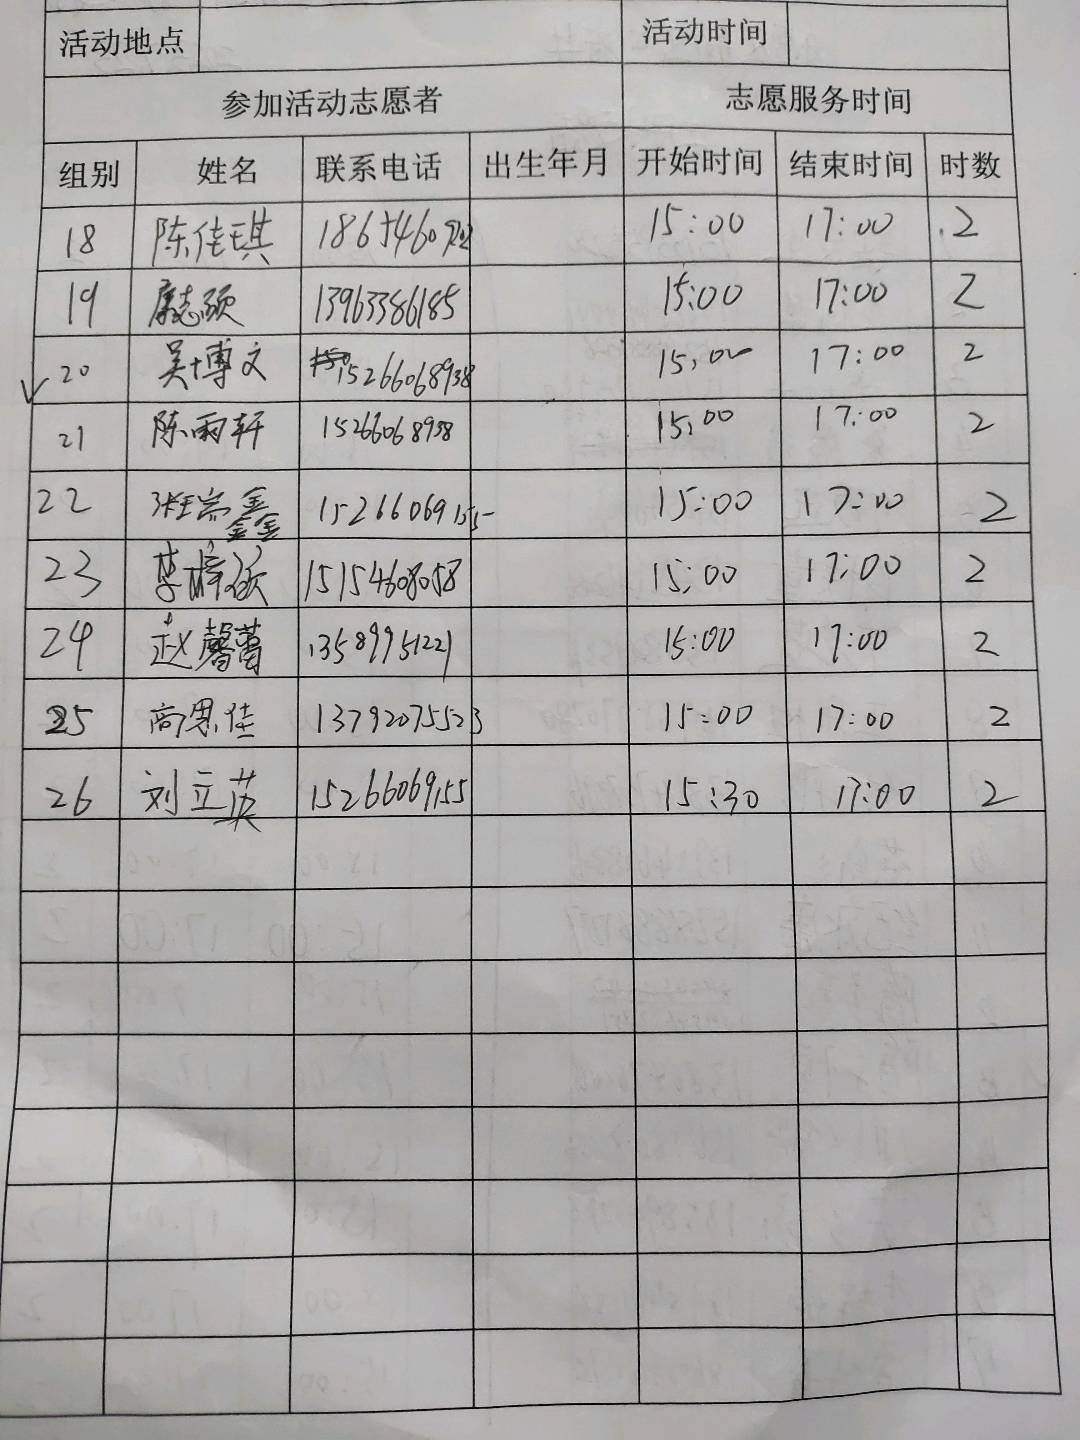 活动地点 活动时间
参加活动志愿者 志愿服务时间
组别 姓名 联系电话 出生年月 开始时间 结束时间 时数
18 陈佳琪 15:00 17:00 2
19 13963386185 15:00 17:00 2
20 吴博文 15266068938 15:00 17:00 2
21 陈雨轩 15266068938 15:00 17:00 2
22 鑫 15266069155 15:00 17:00 2
23 李梓 15154608058 15:00 17:00 2
24 赵馨 13589951221 15:00 17:00 2
25 商恩佳 13792075523 15:00 17:00 2
26 刘立英 15266069155 15:30 17:00 2